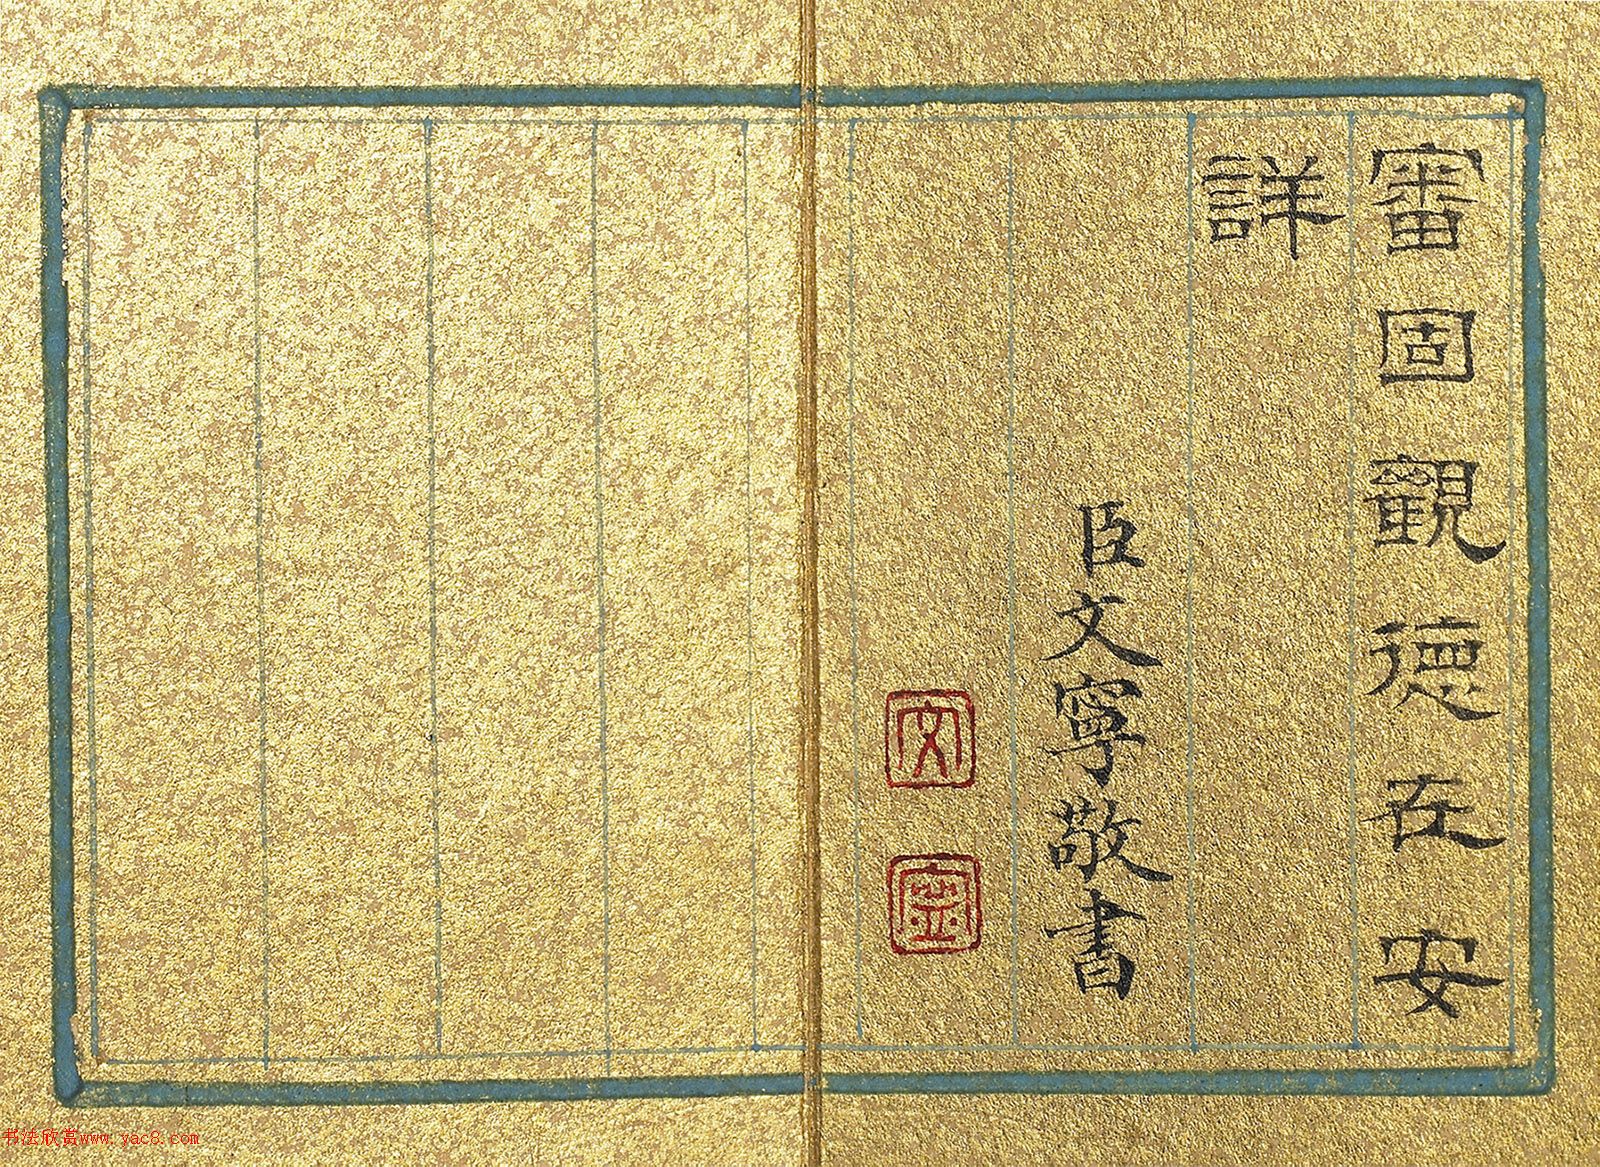 審固觀德在安
詳
臣文寧敬書
文
寧
书法欣赏www.yac8.com